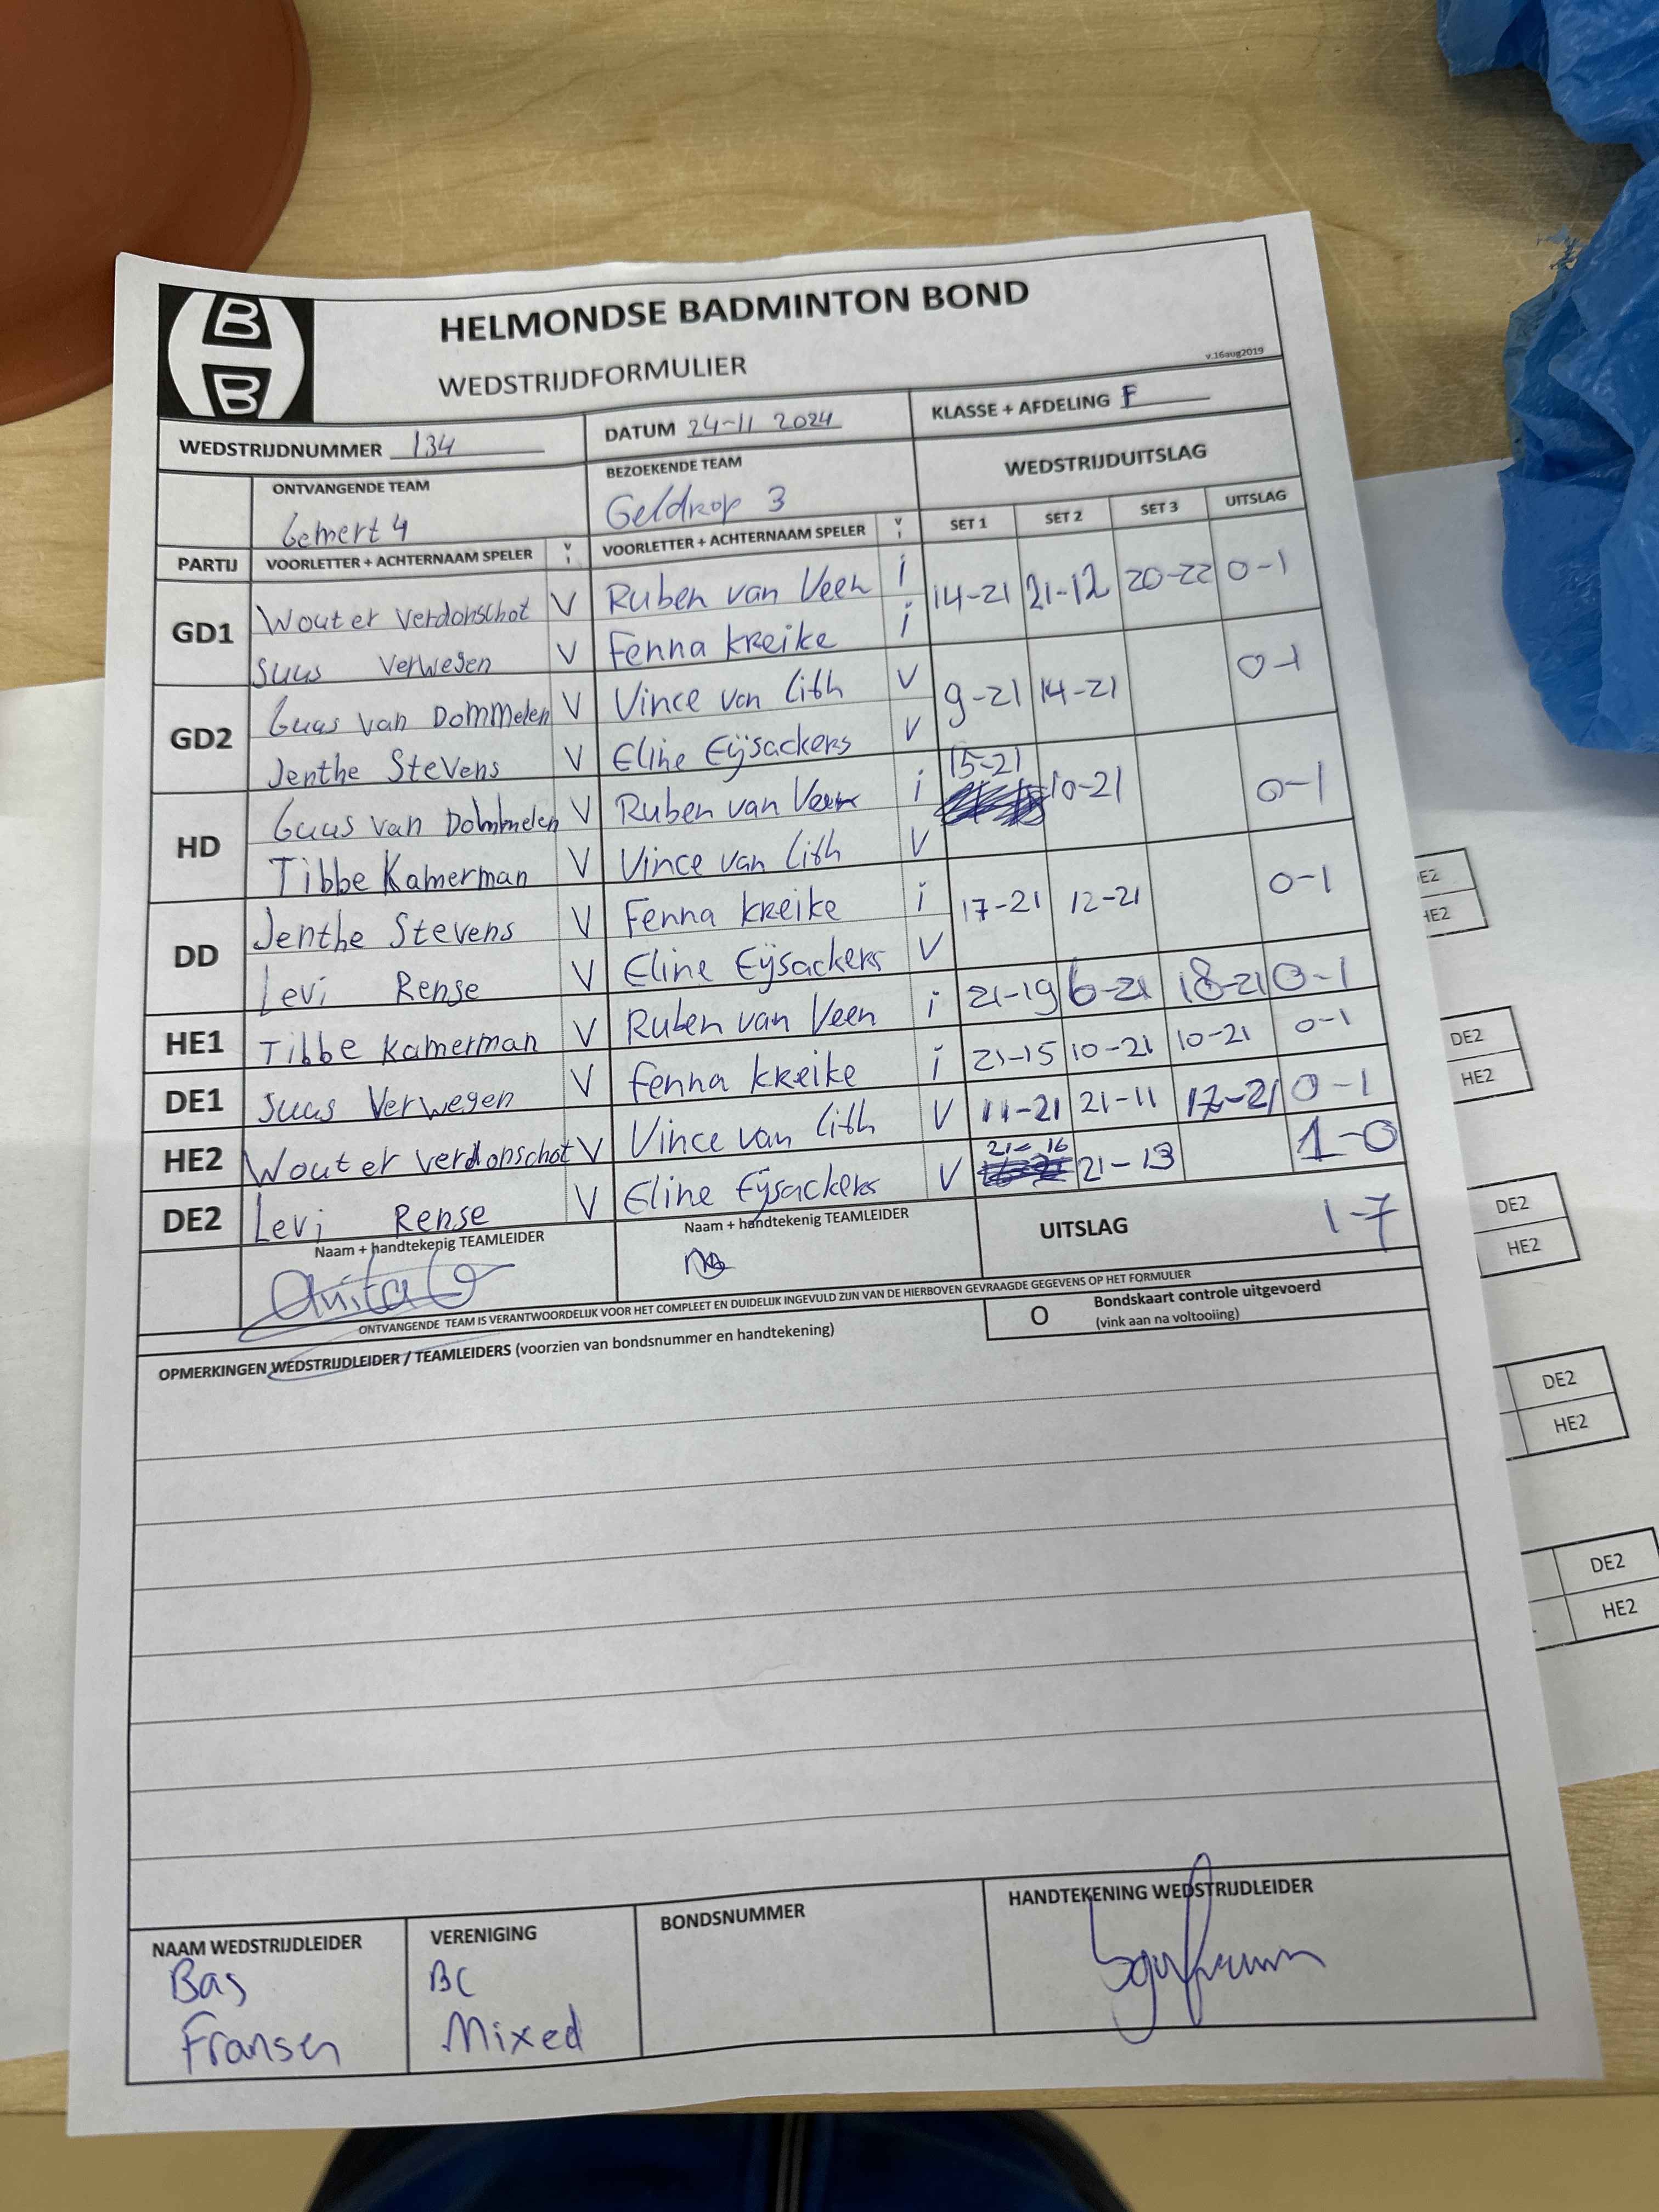 HELMONDSE BADMINTON BOND
WEDSTRIJDFORMULIER
v.16aug2019
WEDSTRIJDNUMMER 134 DATUM 24-11 2024 KLASSE + AFDELING F
ONTVANGENDE TEAM BEZOEKENDE TEAM WEDSTRIJDUITSLAG
Gemert 4 Geldrop 3
PARTIJ VOORLETTER + ACHTERNAAM SPELER V I VOORLETTER + ACHTERNAAM SPELER V I SET 1 SET 2 SET 3 UITSLAG
GD1 Wouter Verdonschot V Ruben van Veen i 14-21 21-12 20-22 0-1
Suus Verwegen V Fenna Kreike i
GD2 Guus van Dommelen V Vince van Lith V 9-21 14-21 0-1
Jenthe Stevens V Eline Eijsackers V
HD Guus van Dommelen V Ruben van Veen i 15-21 10-21 0-1
Tibbe Kamerman V Vince van Lith V
DD Jenthe Stevens V Fenna Kreike i 17-21 12-21 0-1
Levi Rense V Eline Eijsackers V
HE1 Tibbe Kamerman V Ruben van Veen i 21-19 6-21 18-21 0-1
DE1 Suus Verwegen V Fenna Kreike i 21-15 10-21 10-21 0-1
HE2 Wouter Verdonschot V Vince van Lith V 11-21 21-11 17-21 0-1
DE2 Levi Rense V Eline Eijsackers V 21-16 21-13 1-0
Naam + handtekenig TEAMLEIDER Naam + handtekenig TEAMLEIDER UITSLAG 1-7
Anita
ONTVANGENDE TEAM IS VERANTWOORDELIJK VOOR HET COMPLEET EN DUIDELIJK INGEVULD ZIJN VAN DE HIERBOVEN GEVRAAGDE GEGEVENS OP HET FORMULIER
O Bondskaart controle uitgevoerd
(vink aan na voltooiing)
OPMERKINGEN WEDSTRIJDLEIDER / TEAMLEIDERS (voorzien van bondsnummer en handtekening)
NAAM WEDSTRIJDLEIDER VERENIGING BONDSNUMMER HANDTEKENING WEDSTRIJDLEIDER
Bas BC
Fransen Mixed
DE2
HE2
DE2
HE2
DE2
HE2
DE2
HE2
DE2
HE2